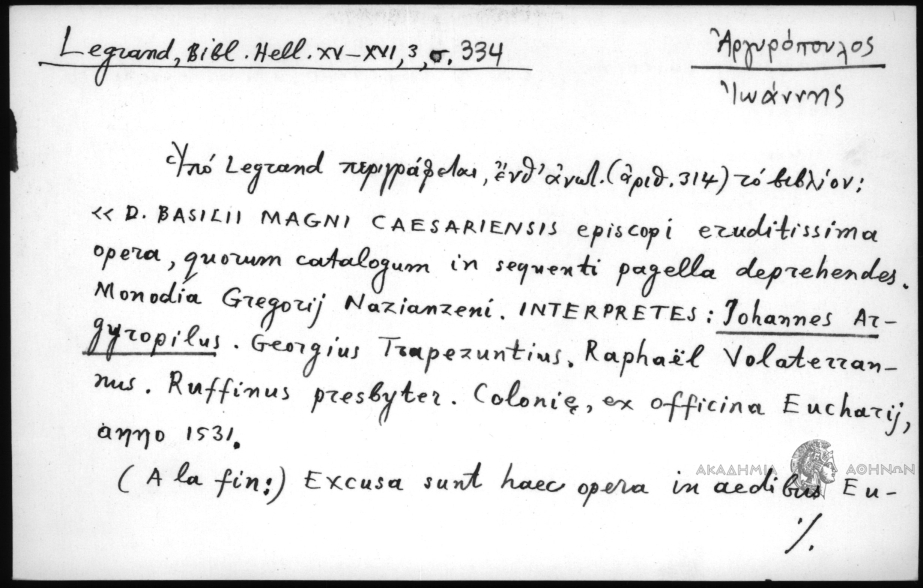 Legrand, Bibl. Hell. XV–XVI, 3, σ. 334
Ἀργυρόπουλος
Ἰωάννης
Ὑπό Legrand περιγράφεται, ἔνθ' ἀνωτ. (ἀριθ. 314) τό βιβλίον:
« D. BASILII MAGNI CAESARIENSIS episcopi eruditissima
opera, quorum catalogum in sequenti pagella deprehendes.
Monodia Gregorij Nazianzeni. INTERPRETES: Johannes Ar-
gyropilus. Georgius Trapezuntius. Raphaël Volaterran-
nus. Ruffinus presbyter. Colonię, ex officina Eucharij,
anno 1531.
(A la fin:) Excusa sunt haec opera in aedibus Eu-
ΑΚΑΔΗΜΙΑ ΑΘΗΝΩΝ
·/.